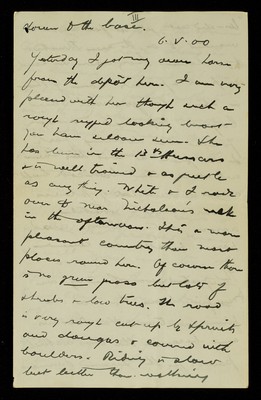 III
down to the base.
6.V.00
Yesterday I got my own horse
from the depôt here. I am very
pleased with her though such a
rough ragged looking beast
you have seldom seen. She
has been in the 13th Hussars
& is well trained & as gentle
as anything. White & I rode
over to near Nicholson's nek
in the afternoon. It is a more
pleasant country than most
places round here. Of course there
is no green grass but lots of
shrubs & low trees. The road
is very rough cut up by spruits
and dongas & covered with
boulders. Riding is slow
but better than walking